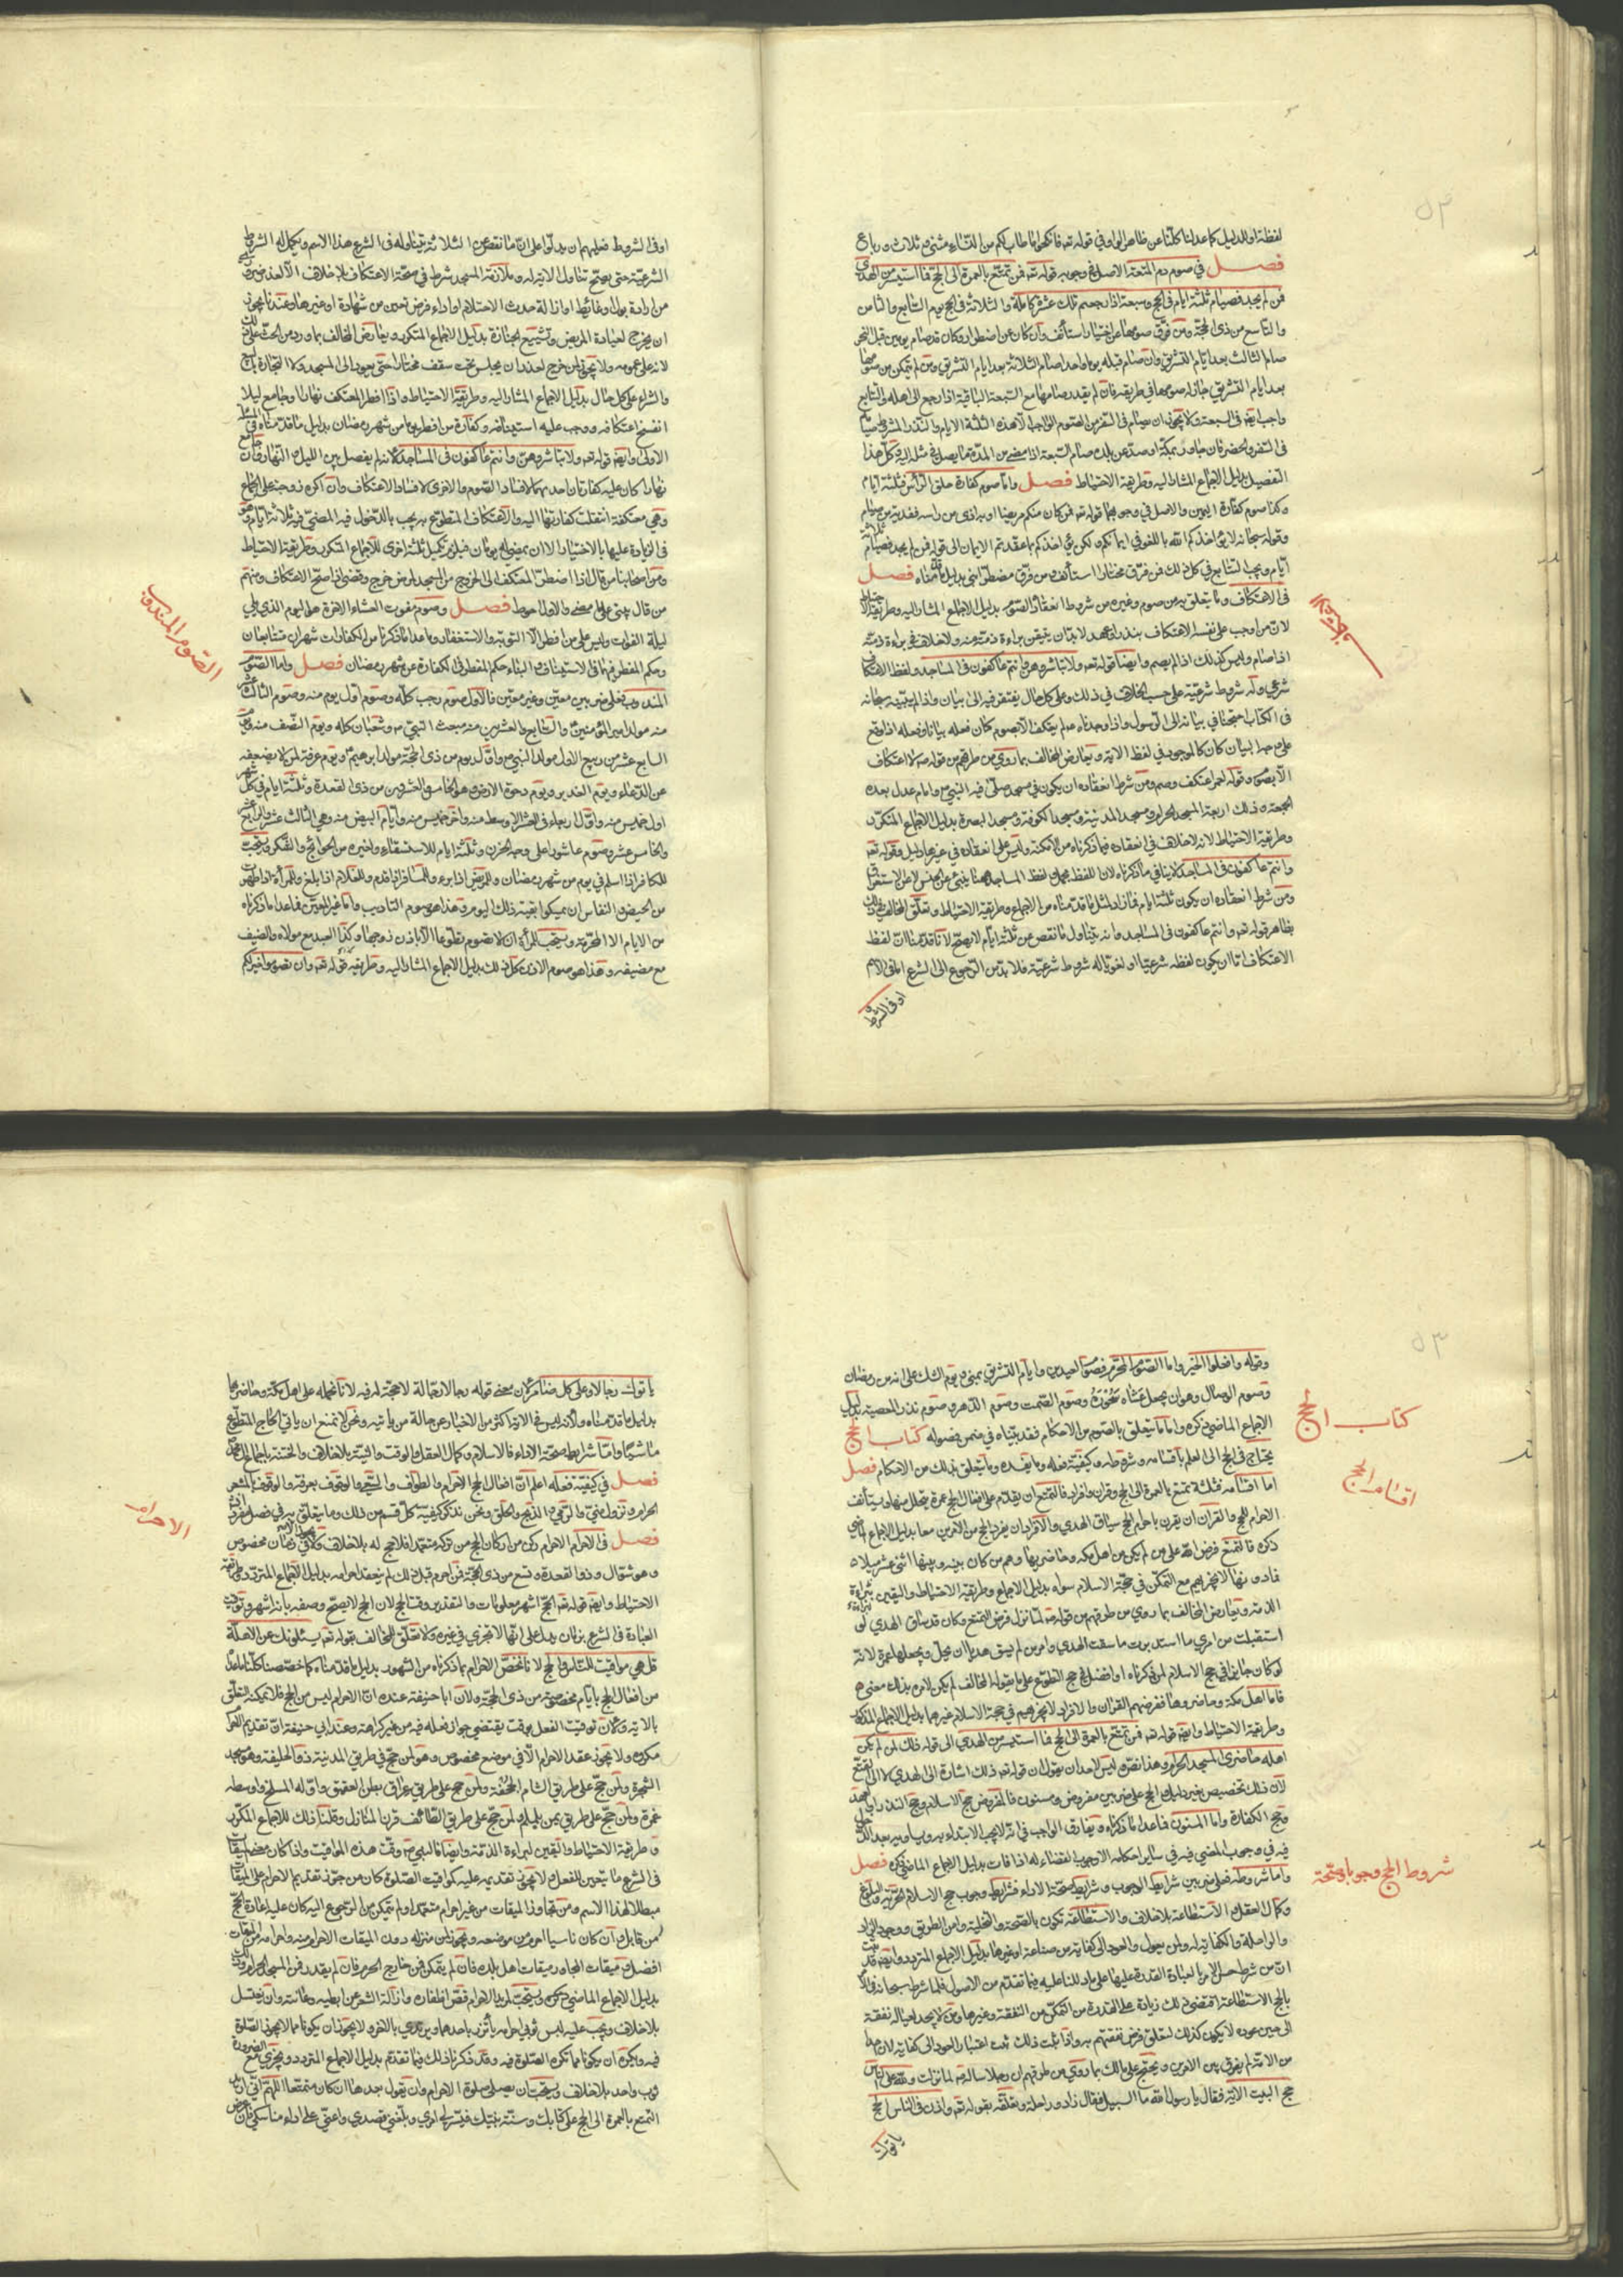 لفظة او للدليل كما عدلنا كلنا عن ظاهر الواو في قوله تع فانكحوا ما طاب لكم من النساء مثنى و ثلاث و رباع
فصل في صوم دم المتعة الاصل في وجوبه قوله تع فمن تمتع بالعمرة الى الحج فما استيسر من الهدى
فمن لم يجد فصيام ثلثة ايام في الحج وسبعة اذا رجعتم تلك عشرة كاملة والثلاثة في الحج يوم السابع والثامن
والتاسع من ذى الحجة ومن فرق صومها عن اختيار استأنف وان كان عن اضطرار وكان قد صام يومين قبل النحر
صام الثالث بعد ايام التشريق وان صام قبله يوما واحدا صام الثلاثة بعد ايام التشريق ومن لم يتمكن من صومها
بعد ايام التشريق جاز له صومها في طريقه فان لم يقدر صامها مع السبعة الباقية اذا رجع الى اهله والتتابع
التفصيل بدليل الاجماع المشار اليه وطريقة الاحتياط فصل واما صوم كفارة حلق الرأس فثلثة ايام
وكذا صوم كفارة اليمين والاصل في وجوبهما قوله تع فمن كان منكم مريضا او به اذى من راسه ففدية من صيام
وقوله سبحانه لا يؤاخذكم الله باللغو في ايمانكم ولكن يؤاخذكم بما عقدتم الايمان الى قوله فمن لم يجد فصيام ثلثة
ايام ويجب التتابع في كل ذلك فمن فرق مختارا استأنف ومن فرق مضطرا بنى بدليل ما قدمناه فصل
في الاعتكاف وما يتعلق به من صوم وغيره من شروط انعقاده الصوم بدليل الاجماع المشار اليه وطريقة الاحتياط
لان من اوجب على نفسه الاعتكاف بنذر او عهد لابد ان يتيقن براءة ذمته منه ولا خلاف في براءة ذمته
اذا صام وليس كذلك اذا لم يصم وايضا قوله تع ولا تباشروهن وانتم عاكفون في المساجد ولفظ الاعتكاف
شرعي وله شروط شرعية على حسب الخلاف في ذلك وعلى كل حال يفتقر فيه الى بيان واذا لم يبينه سبحانه
الجمعة وذلك اربعة المسجد الحرام ومسجد المدينة ومسجد الكوفة ومسجد البصرة بدليل الاجماع المتكرر
وطريقة الاحتياط لانه لا خلاف في انعقاده فيما ذكرناه من الامكنة وليس على انعقاده في غيرها دليل وقوله تع
ومن شرط انعقاده ان يكون ثلثة ايام فما زاد لمثل ما قدمناه من الاجماع وطريقة الاحتياط وتعلق المخالف في ذلك
بظاهر قوله تع وانتم عاكفون في المساجد وانه يتناول ما نقص عن ثلثة ايام لا يصح لانا قد بينا ان لفظ
الاعتكاف اما ان يكون لفظه شرعيا او لغويا له شروط شرعية فلا بد من الرجوع الى الشرع اما في الاسم
او في الشروط
الاعتكاف
او في الشروط فعليهم ان يدلوا على ان ما نقص عن الثلاثة يتناوله في الشرع هذا الاسم وتكمل له الشروط
الشرعية حتى يصح تناول الاية له وملازمة المسجد شرط في صحة الاعتكاف بلا خلاف الا لعذر ضروري
من ارادة بول او غائط او ازالة حدث الاحتلام او اداء فرض تعين من شهادة او غيرها وعندنا يجوز
ان يخرج لعيادة المريض وتشييع الجنازة بدليل الاجماع المتكرر ويعارض المخالف بما ورد من الحث على ذلك
لانه على عمومه ولا يجوز لمن خرج لعذر ان يجلس تحت سقف مختارا حتى يعود الى المسجد ولا التجارة بالبيع
والشراء على كل حال بدليل الاجماع المشار اليه وطريقة الاحتياط واذا افطر المعتكف نهارا او جامع ليلا
انفسخ اعتكافه ووجب عليه استينافه وكفارة من افطر يوما من شهر رمضان بدليل ما قدمناه في المسئلة
الاولى وايضا قوله تع ولا تباشروهن وانتم عاكفون في المساجد لانه لم يفصل بين الليل والنهار فان جامع
نهارا كان عليه كفارتان احديهما لافساد الصوم والاخرى لافساد الاعتكاف وان اكره زوجته على الجماع
وهي معتكفة انتقلت كفارتها اليه والاعتكاف المتطوع به يجب بالدخول فيه المضى فيه ثلاثة ايام وهو
في الزيادة عليها بالاختيار الا ان يمضى له يومان فيلزم تكميل ثلثة اخرى للاجماع المتكرر وطريقة الاحتياط
من قال يبنى على ما مضى والاول احوط فصل وصوم مفوت العشاء الاخرة هو اليوم الذي يلي
ليلة الفوات وليس على من افطر الا التوبة والاستغفار وما عدا ما ذكرناه من الكفارات شهران متتابعان
وحكم المفطر فيهما في الاستيناف والبناء حكم المفطر في الكفارة عن شهر رمضان فصل واما الصوم
المندوب فعلى ضربين معين وغير معين فالاول صوم رجب كله وصوم اول يوم منه وصوم الثالث عشر
منه مولد امير المؤمنين والسابع والعشرين منه مبعث النبي ص وشعبان كله ويوم النصف منه ويوم
السابع عشر من ربيع الاول مولد النبي ص واول يوم من ذى الحجة مولد ابرهيم ويوم عرفة لمن لا يضعفه
عن الدعاء ويوم الغدير ويوم دحو الارض وهو الخامس والعشرين من ذى القعدة وثلثة ايام في كل شهر
اول خميس منه واول اربعاء في العشر الاوسط منه واخر خميس منه وايام البيض منه وهي الثالث عشر والرابع عشر
والخامس عشر وصوم عاشورا على وجه الحزن وثلثة ايام للاستسقاء ولغيره من الحوائج والشكر ويستحب
للكافر اذا اسلم في يوم من شهر رمضان وللمريض اذا برء وللمسافر اذا قدم وللغلام اذا بلغ وللمرأة اذا طهرت
من الحيض والنفاس ان يمسكوا بقية ذلك اليوم وهذا هو صوم التاديب واما غير المعين فما عدا ما ذكرناه
من الايام الا المحرمة ويستحب للمرأة ان لا تصوم تطوعا الا باذن زوجها وكذا العبد مع مولاه والضيف
مع مضيفه وهذا هو صوم الاذن كل ذلك بدليل الاجماع المشار اليه وطريقه قوله تع وان تصوموا خير لكم
الصوم المندوب
وقوله وافعلوا الخير واما الصوم المحرم فصوم العيدين وايام التشريق بمنى ويوم الشك على انه من رمضان
وصوم الوصال وهو ان يجعل عشاه سحوره وصوم الصمت وصوم الدهر وصوم نذر المعصية بدليل
الاجماع الماضي ذكره واما ما يتعلق بالصوم من الاحكام فقد بيناه في ضمن فصوله كتاب الحج
يحتاج في الحج الى العلم باقسامه وشروطه وكيفية فعله وما يفسده وما يتعلق بذلك من الاحكام فصل
اما اقسامه فثلثة تمتع بالعمرة الى الحج وقران وافراد فالتمتع ان يقدم على افعال الحج عمرة يتحلل منها ويستأنف
الاحرام للحج والقران ان يقرن باحرام الحج سياق الهدي والافراد ان يفرد الحج من الامرين معا بدليل الاجماع الماضي
ذكره فالتمتع فرض الله على من لم يكن من اهل مكة وحاضريها وهم من كان بينه وبينها اثنى عشر ميلا
فما دونها لا يجزيهم مع التمكن في حجة الاسلام سواه بدليل الاجماع وطريقة الاحتياط واليقين ببراءة
الذمة ويعارض المخالف بما روي من طرقهم من قوله ص لما نزل فرض التمتع وكان قد ساق الهدي لو
استقبلت من امري ما استدبرت ما سقت الهدي وامر من لم يسق هديا ان يحل ويجعلها عمرة لانه
فاما اهل مكة وحاضروها ففرضهم القران والافراد لا يجزيهم في حجة الاسلام غيرهما بدليل الاجماع المذكور
وطريقة الاحتياط وايضا قوله تع فمن تمتع بالعمرة الى الحج فما استيسر من الهدى الى قوله ذلك لمن لم يكن
اهله حاضرى المسجد الحرام وهذا نص وليس لاحد ان يقول ان قوله تع ذلك اشارة الى الهدي لا الى التمتع
لان ذلك تخصيص بغير دليل والحج على ضربين مفروض ومسنون فالمفروض حج الاسلام وحج النذر او العهد
وحج الكفارة واما المسنون فما عدا ما ذكرناه ويفارق الواجب في انه لا يجب الابتداء به ويساويه بعد الدخول
فيه في وجوب المضى فيه في سائر احكامه الا وجوب القضاء له اذا فات بدليل الاجماع الماضي ذكره فصل
واما شروطه فعلى ضربين شرايط الوجوب وشرايط صحة الاداء فشرايط وجوب حج الاسلام الحرية والبلوغ
وكمال العقل والاستطاعة بلا خلاف والاستطاعة تكون بالصحة والتخلية وامن الطريق ووجود الزاد
والراحلة والكفاية له ولمن يعول والعود الى كفاية من صناعة او غيرها بدليل الاجماع المتردد وايضا فقد ثبت
ان من شرط حسن الامر بالعبادة القدرة عليها على ما دللنا عليه فيما تقدم من الاصول فلما شرط سبحانه في الامر
بالحج الاستطاعة اقتضى ذلك زيادة على القدرة من التمكن من النفقة وغيرها ومن لا يجد لعياله نفقة
الى حين عوده لا يكون كذلك لتعلق فرض نفقتهم به واذا ثبت ذلك ثبت اعتبار العود الى كفاية لان احدا
من الامة لم يفرق بين الامرين ويحتج على مالك بما روي من طرقهم ان رجلا سأله ص لما نزلت ولله على الناس
حج البيت الاية فقال يا رسول الله ما السبيل فقال زاد وراحلة وتعلقه بقوله تع واذن في الناس بالحج
ياتوك
كتاب الحج
اقسامه الحج
شروط الحج وجوبا وصحة
ياتوك رجالا وعلى كل ضامر لان معنى قوله رجالا رجالة لا حجة له فيه لانا نحمله على اهل مكة وحاضريها
بدليل ما قدمناه ولانه ليس في الاية اكثر من الاخبار عن حالة من ياتيه ونحن لا نمنع ان ياتي الحاج المتطوع
ماشيا واما شرايط صحة الاداء فالاسلام وكمال العقل والوقت والنية بلا خلاف والختنة باجماع ال محمد
فصل في كيفية فعله اعلم ان افعال الحج الاحرام والطواف والسعي والوقوف بعرفة والوقوف بالمشعر
الحرام ونزول منى والرمي والذبح والحلق ونحن نذكر كيفية كل قسم من ذلك وما يتعلق به في فصل مفرد
فصل في الاحرام الاحرام ركن من اركان الحج من تركه متعمدا فلا حج له بلا خلاف ولا يجوز الا في زمان مخصوص
وهو شوال وذو القعدة وتسع من ذى الحجة فمن احرم قبل ذلك لم ينعقد احرامه بدليل الاجماع المتردد وطريقة
الاحتياط وايضا قوله تع الحج اشهر معلومات والتقدير وقت الحج لان الحج لا يصح وصفه بانه اشهر وتوقيت
العبادة في الشرع بزمان يدل على انها لا تجزي في غيره ولا تعلق للمخالف بقوله تع يسئلونك عن الاهلة
قل هي مواقيت للناس والحج لانا نخص الاحرام بما ذكرناه من الشهور بدليل ما قدمناه كما خصصنا كلنا ما عداه
من افعال الحج بايام مخصوصة من ذى الحجة ولان ابا حنيفة عنده ان الاحرام ليس من الحج فلا يمكنه التعلق
بالاية ولان توقيت الفعل بوقت يقتضي جواز فعله فيه من غير كراهة وعند ابي حنيفة ان تقديم الاحرام
مكروه ولا يجوز عقد الاحرام الا في موضع مخصوص وهو لمن حج في طريق المدينة ذو الحليفة وهو مسجد
الشجرة ولمن حج على طريق الشام الجحفة ولمن حج على طريق عراق بطن العقيق واوله المسلخ واوسطه
غمرة ولمن حج على طريق يمن يلملم ولمن حج على طريق الطائف قرن المنازل وقلنا ذلك للاجماع المكرر
وطريقة الاحتياط واليقين لبراءة الذمة وايضا فالنبي ص وقت هذه المواقيت واذا كان معنى الميقات
في الشرع ما يتعين للفعل ولا يجوز تقديمه عليه كمواقيت الصلوة كان من جوز تقديم الاحرام على الميقات
مبطلا لهذا الاسم ومن تجاوز الميقات من غير احرام متعمدا ولم يتمكن من الرجوع اليه كان عليه اعادة الحج
من قابل وان كان ناسيا احرم من موضعه ويجوز لمن منزله دون الميقات الاحرام منه واحرامه من الميقات
افضل وميقات المجاور ميقات اهل بلده فان لم يتمكن فمن خارج الحرم فان لم يقدر فمن المسجد الحرام كل ذلك
بدليل الاجماع الماضي ذكره ويستحب لمريد الاحرام قص اظفاره وازالة الشعر عن ابطيه وعانته وان يغتسل
بلا خلاف ويجب عليه لبس ثوبي احرامه يأتزر باحدهما ويرتدي بالاخر ولا يجوز ان يكونا مما لا يجوز الصلوة
فيه ويكره ان يكونا مما تكره الصلوة فيه وقد ذكرنا ذلك فيما تقدم بدليل الاجماع المتردد ويجزي مع الضرورة
ثوب واحد بلا خلاف ويستحب ان يصلى صلوة الاحرام وان يقول بعدها ان كان متمتعا اللهم اني اريد
التمتع بالعمرة الى الحج على كتابك وسنة نبيك فيسر لي امري وبلغني قصدي واعني على اداء مناسكي فان عرض
الاحرام